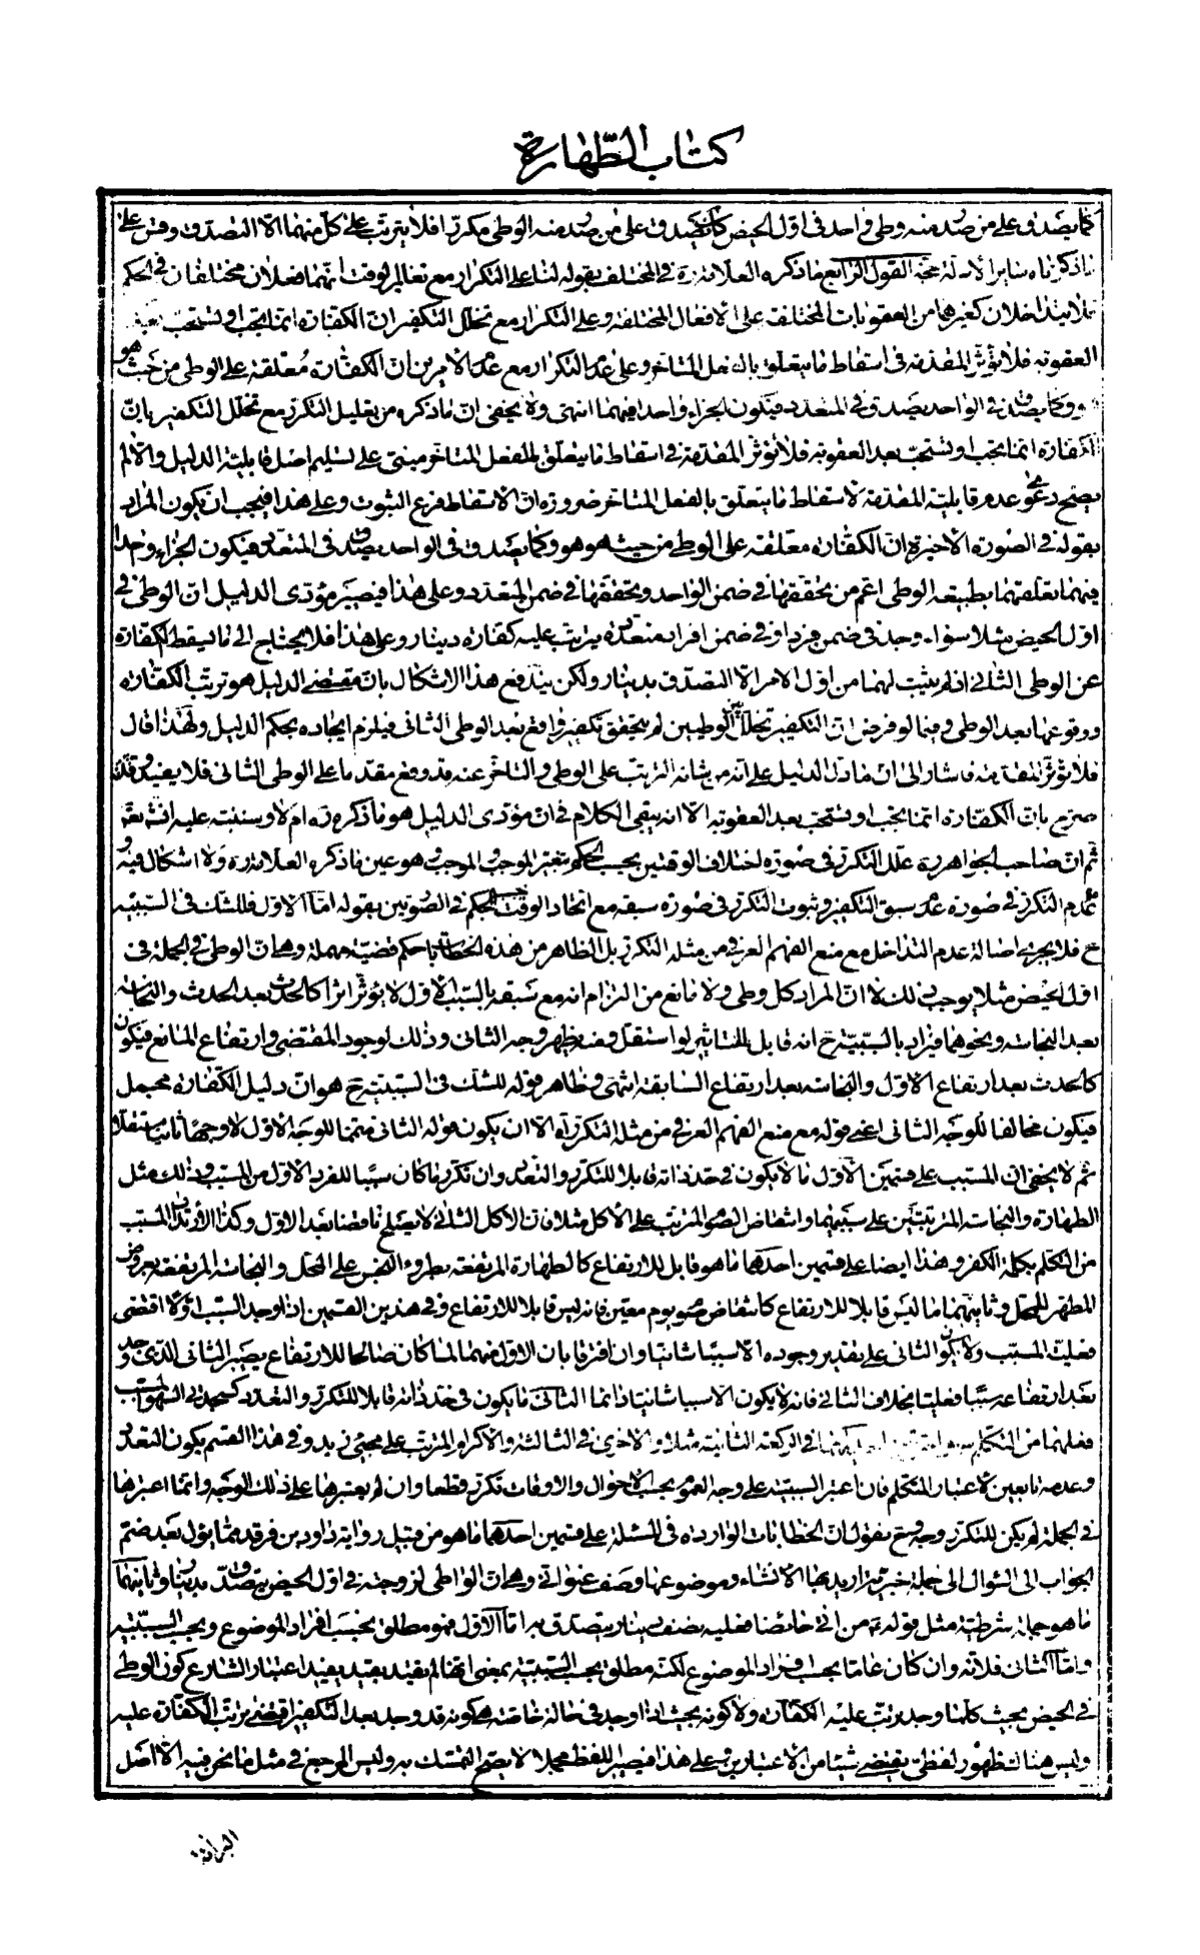 كتاب الطهارة
كما يصدق على من صدر منه وطى واحد فى اول الحيض كك يصدق على من صدر منه الوطى مكررا فلا يترتب على كل منهما الا التصدق وقس على
ما ذكرناه ساير الادلة حجة القول الرابع ما ذكره العلامة ره فى المختلف بقوله لنا على التكرار مع تغاير الوقت انهما فعلان مختلفان فى الحكم
فلا يتداخلان كغيرهما من العقوبات المختلفة على الافعال المختلفة وعلى التكرار مع تخلل التكفير ان الكفارة انما تجب او تستحب
العقوبة فلا يؤثر المتقدمة فى اسقاط ما يتعلق بالفعل المتاخر وعلى عدم التكرار مع عدم الامرين ان الكفارة متعلقة على الوطى من حيث هو
هو وكما يصدق فى الواحد يصدق فى المتعدد فيكون الجزاء واحدا فيهما انتهى ولا يخفى ان ما ذكره من تعليل التكرر مع تخلل التكفير بان
الكفارة انما تجب او تستحب بعد العقوبة فلا تؤثر المتقدمة فى اسقاط ما يتعلق بالفعل المتاخر مبنى على تسليم اصل قابلية الدليل والا لم
يصح دعوى عدم قابلية المتقدمة لاسقاط ما يتعلق بالفعل المتاخر ضرورة ان الاسقاط فرع الثبوت وعلى هذا فيجب ان يكون المراد
بقوله فى الصورة الاخيرة ان الكفارة معلقة على الوطى من حيث هو هو وكما يصدق فى الواحد يصدق فى المتعدد فيكون الجزاء واحدا
فيهما تعلقهما بطبيعة الوطى اعم من تحققها فى ضمن الواحد وتحققها فى ضمن المتعدد وعلى هذا فيصير مؤدى الدليل ان الوطى فى
اول الحيض مثلا سواء وجد فى ضمن فرد او فى ضمن افراد متعددة يترتب عليه كفارة دينار وعلى هذا فلا يحتاج الى ما يسقط الكفارة
عن الوطى الثانى اذ لم يثبت لهما من اول الامر الا التصدق بدينار ولكن يندفع هذا الاشكال بان مقتضى الدليل هو ترتب الكفارة
ووقوعها بعد الوطى وفيما لو فرض ان التكفير تخلل بين الوطيين لم يتحقق تكفير واقع بعد الوطى الثانى فيلزم ايجاده بحكم الدليل ولهذا قال
فلا تؤثر المتقدمة فاشار الى ان ما دل الدليل على انه من شانه الترتب على الوطى والتاخر عنه قد وقع مقدما على الوطى الثانى فلا يفيد وقد
صرح بان الكفارة انما تجب او تستحب بعد العقوبة الا انه يبقى الكلام فى ان مؤدى الدليل هو ما ذكره ره ام لا وسننبه عليه انش تعم
ثم ان صاحب الجواهر ره علل التكرر فى صورة اختلاف الوقتين بحسب الحكم بتغير الموجب والموجب وهو عين ما ذكره العلامة ره ولا اشكال فيه و
عدم التكرر فى صورة عدم سبق التكفير وثبوت التكرر فى صورة سبقه مع اتحاد الوقت بحسب الحكم فى الصورتين بقوله اما الاول فللشك فى السببية
ح فلا يجرى اصالة عدم التداخل مع منع الفهم العرفى من مثله التكرر بل الظاهر من هذه الخطابات حكم قضية مهملة وهى ان الوطى فى الجملة فى
اول الحيض مثلا يوجب ذلك لا ان المراد كل وطى ولا مانع من التزام انه مع سبقه بالسبب الاول لا يؤثر اثرا كالحدث بعد الحدث والنجاسة
بعد النجاسة ونحوهما فيراد بالسببية ح انه قابل للتاثير لو استقل ومنه يظهر وجه الثانى وذلك لوجود المقتضى وارتفاع المانع فيكون
كالحدث بعد ارتفاع الاول والنجاسة بعد ارتفاع السابقة انتهى وظاهر قوله للشك فى السببية ح هو ان دليل الكفارة مجمل
فيكون مخالفا للوجه الثانى اعنى قوله مع منع الفهم العرفى من مثله التكرر آه الا ان يكون قوله الثانى متمما للوجه الاول لا وجها ثانيا مستقلا
ثم لا يخفى ان المسبب على قسمين الاول ما لا يكون فى حد ذاته قابلا للتكرر والتعدد وان تكرر ما كان سببا للفرد الاول من المسبب وذلك مثل
الطهارة والنجاسة المترتبتين على سببهما وانتقاض الصوم المترتب على الاكل مثلا فان الاكل الثانى لا يصلح ناقضا بعد الاول وكذا الارتداد المسبب
من التكلم بكلمة الكفر وهذا ايضا على قسمين احدهما ما هو قابل للارتفاع كالطهارة المرتفعة بطروء النجس على المحل والنجاسة المرتفعة بعروض
المطهر للمحل وثانيهما ما ليس قابلا للارتفاع كانتقاض صوم يوم معين فانه ليس قابلا للارتفاع وفى هذين القسمين اذا وجد السبب اولا اقتضى
فعلية المسبب ولا يكون الثانى على تقدير وجوده الا سببا شانيا وان افترقا بان الاول منهما لما كان صالحا للارتفاع يصير الثانى الذى وجد
بعد ارتفاعه سببا فعليا بخلاف الثانى فانه لا يكون الا سببا شانيا دائما الثانى ما يكون فى حد ذاته قابلا للتكرر والتعدد كسجدتى السهو
فعلهما من المتكلم فى الركعة الثانية مثلا والاخرى فى الثالثة والاكرام المترتب على مجيئ زيد وفى هذا القسم يكون التعدد
وعدمه تابعين لاعتبار المتكلم فان اعتبر السببية على وجه العموم بحسب الاحوال والاوقات تكرر قطعا وان لم يعتبرها على ذلك الوجه وانما اعتبرها
فى الجملة لم يكن للتكرر وجه وح نقول ان الخطابات الواردة فى المسئلة على قسمين احدهما ما هو من قبيل رواية داود بن فرقد مما يؤل بعد ضم
الجواب الى السؤال الى جملة خبرية اريد بها الانشاء وموضوعها وصف عنوانى وهى ان الواطى لزوجته فى اول الحيض يتصدق بدينار وثانيهما
ما هو جملة شرطية مثل قوله ع من اتى حائضا فعليه نصف دينار يتصدق به اما الاول فهو مطلق بحسب افراد الموضوع وبحسب السببية
واما الثانى فلانه وان كان عاما بحسب افراد الموضوع لكنه مطلق بحسب السببية بمعنى انها لم تقيد بقيد يفيد اعتبار الشارع كون الوطى
فى الحيض بحيث كلما وجد يرتب عليه الكفارة ولا كونه بحيث اذا وجد فى حالة خاصة هى كونه قد وجد بعد التكفير اقتضى ترتب الكفارة عليه
وليس هناك ظهور لفظى يقتضى شيئا من الاعتبارين وعلى هذا فيصير اللفظ مجملا لا يصح التمسك به وليس المرجع فى مثل ما نحن فيه الا اصل
البرائة